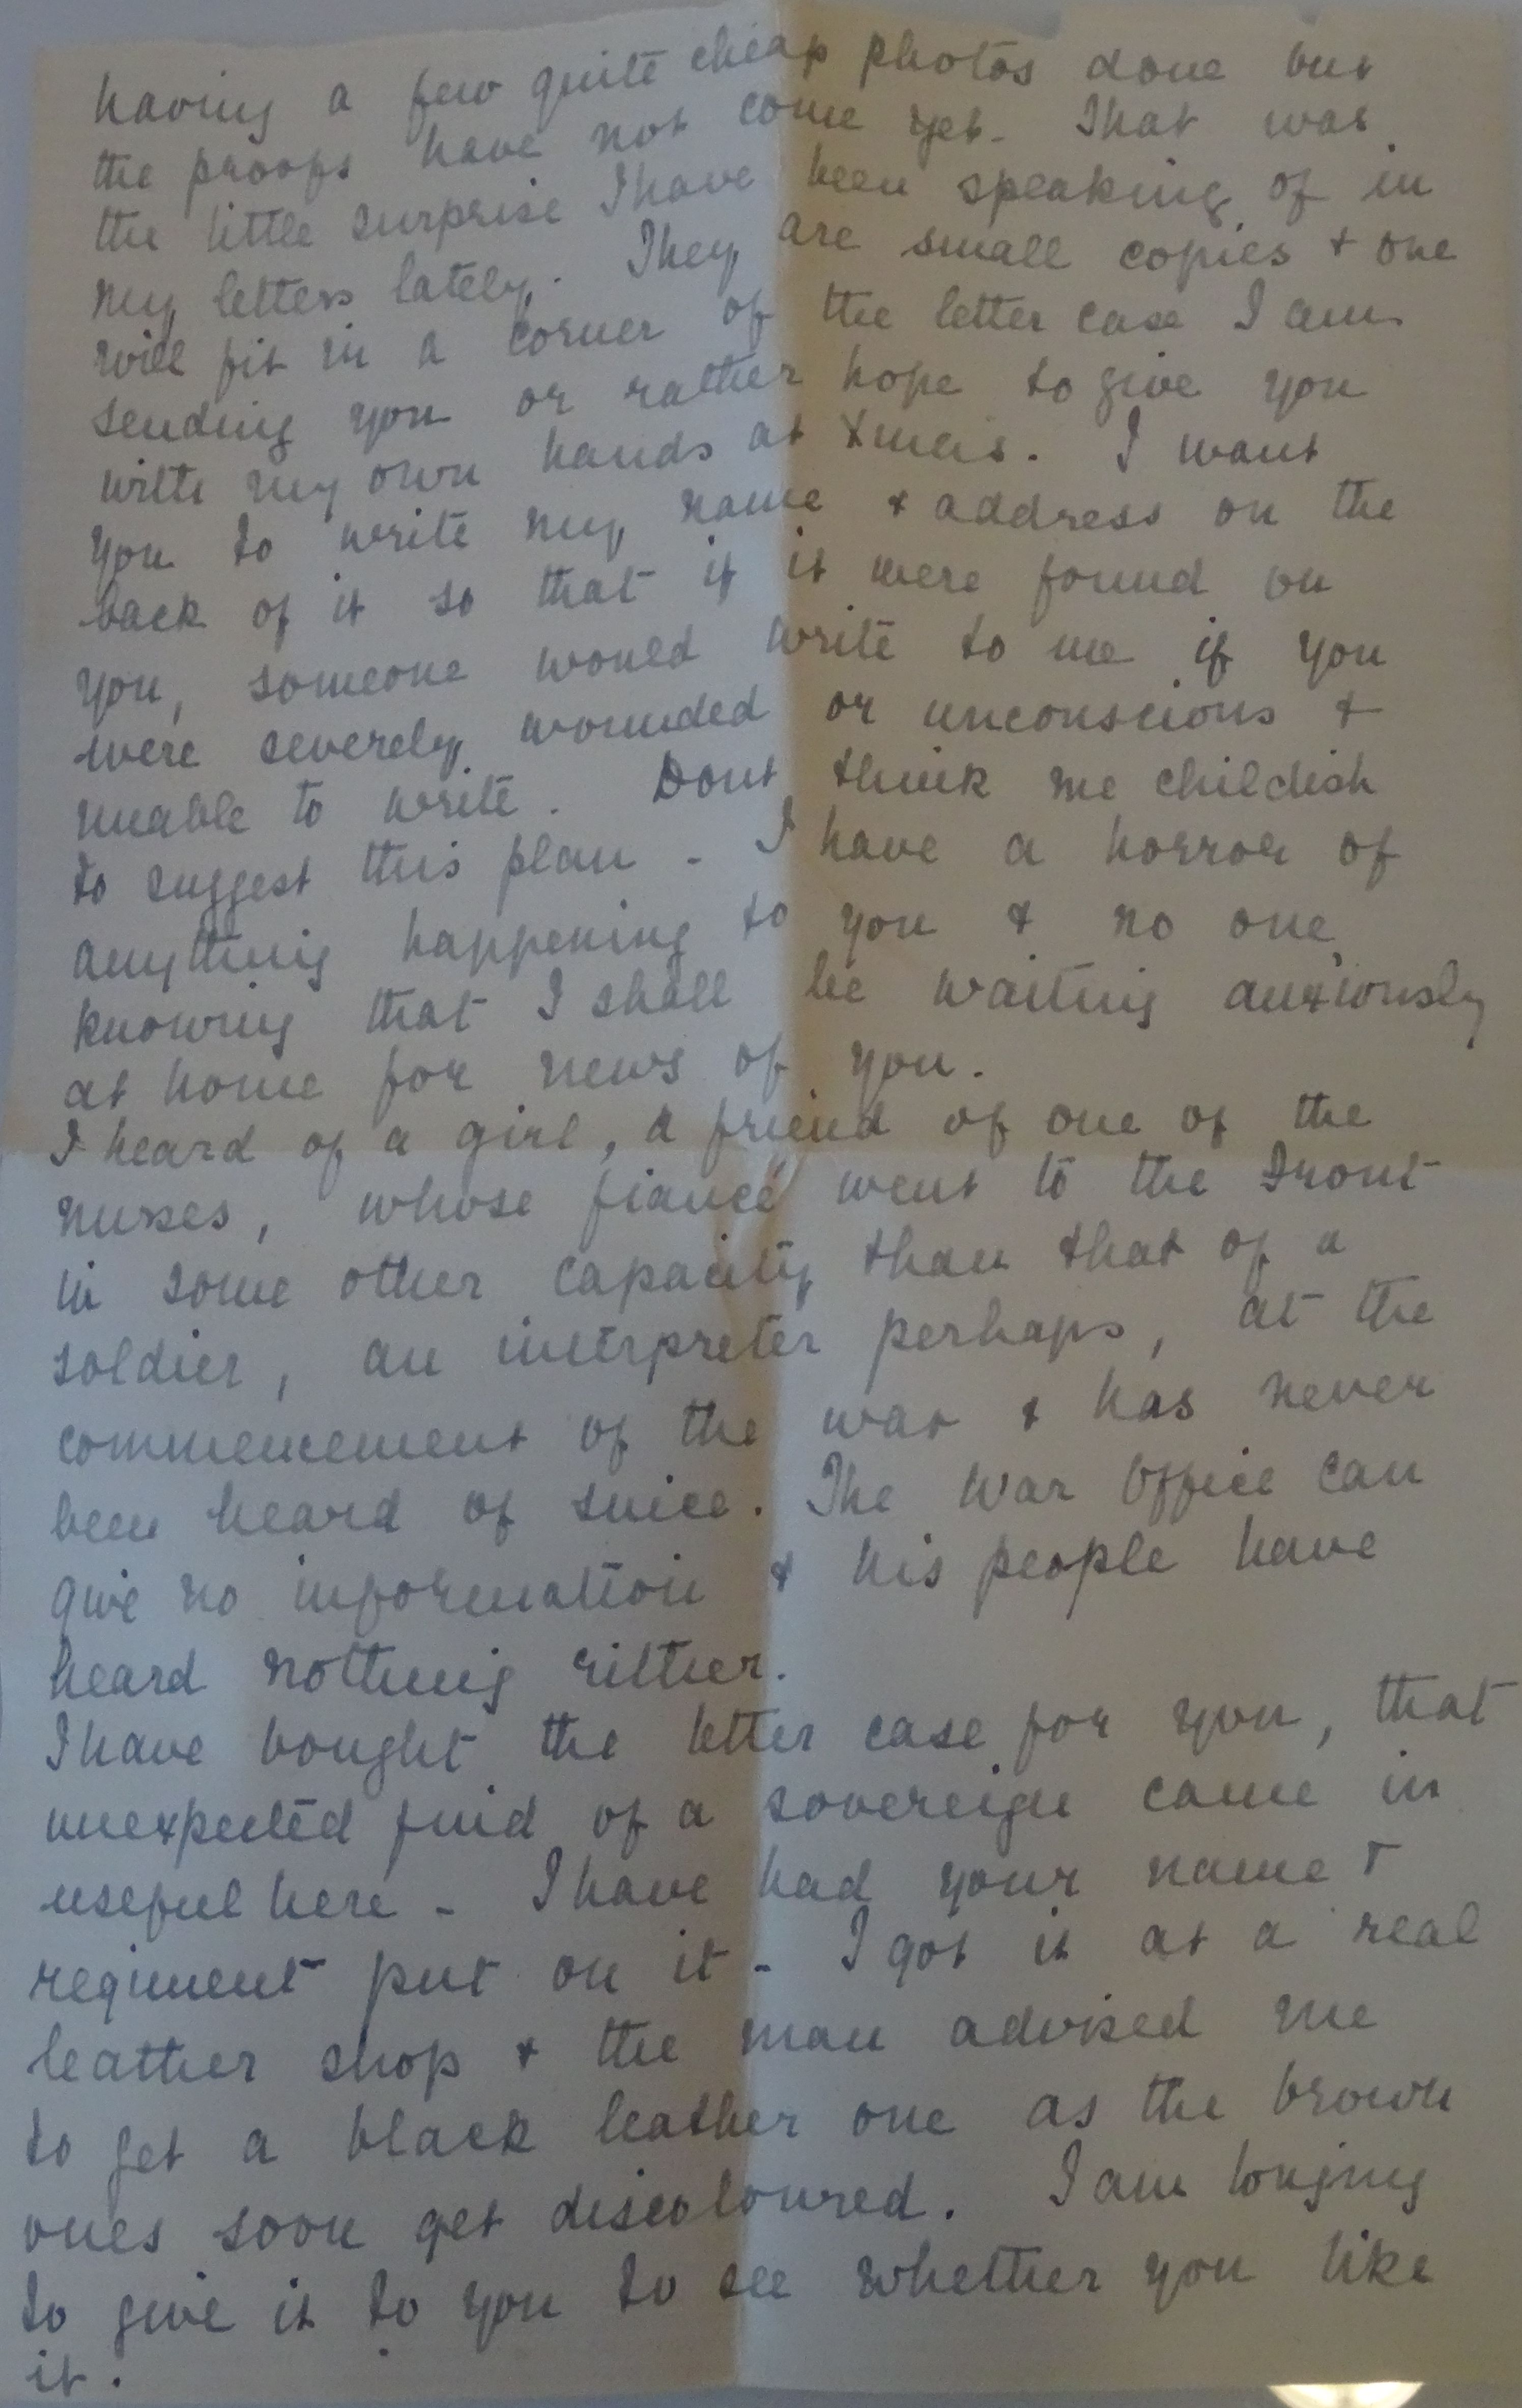 having a few quite cheap photos done but
the proofs have not come yet - That was
the little surprise I have been speaking of in
my letters lately. They are small copies + one
will fit in a corner of the letter case I am
sending you or rather hope to give you
with my own hands at Xmas. I want
you to write my name + address on the
back of it so that if it were found on
you, someone would write to me if you
were severely wounded or unconscious +
unable to write. Dont think me childish
to suggest this plan - I have a horror of
anything happening to you + no one
knowing that I shall be waiting anxiously
at home for news of you.
I heard of a girl, a friend of one of the
nurses, whose fiancé went to the Front
in some other capacity than that of a
soldier, an interpreter perhaps, at the
commencement of the war + has never
been heard of since. The War Office can
give no information + his people have
heard nothing either.
I have bought the letter case for you, that
unexpected find of a sovereign came in
useful here - I have had your name +
regiment put on it - I got it at a real
leather shop + the man advised me
to get a black leather one as the brown
ones soon get discoloured. I am longing
to give it to you to see whether you like
it.